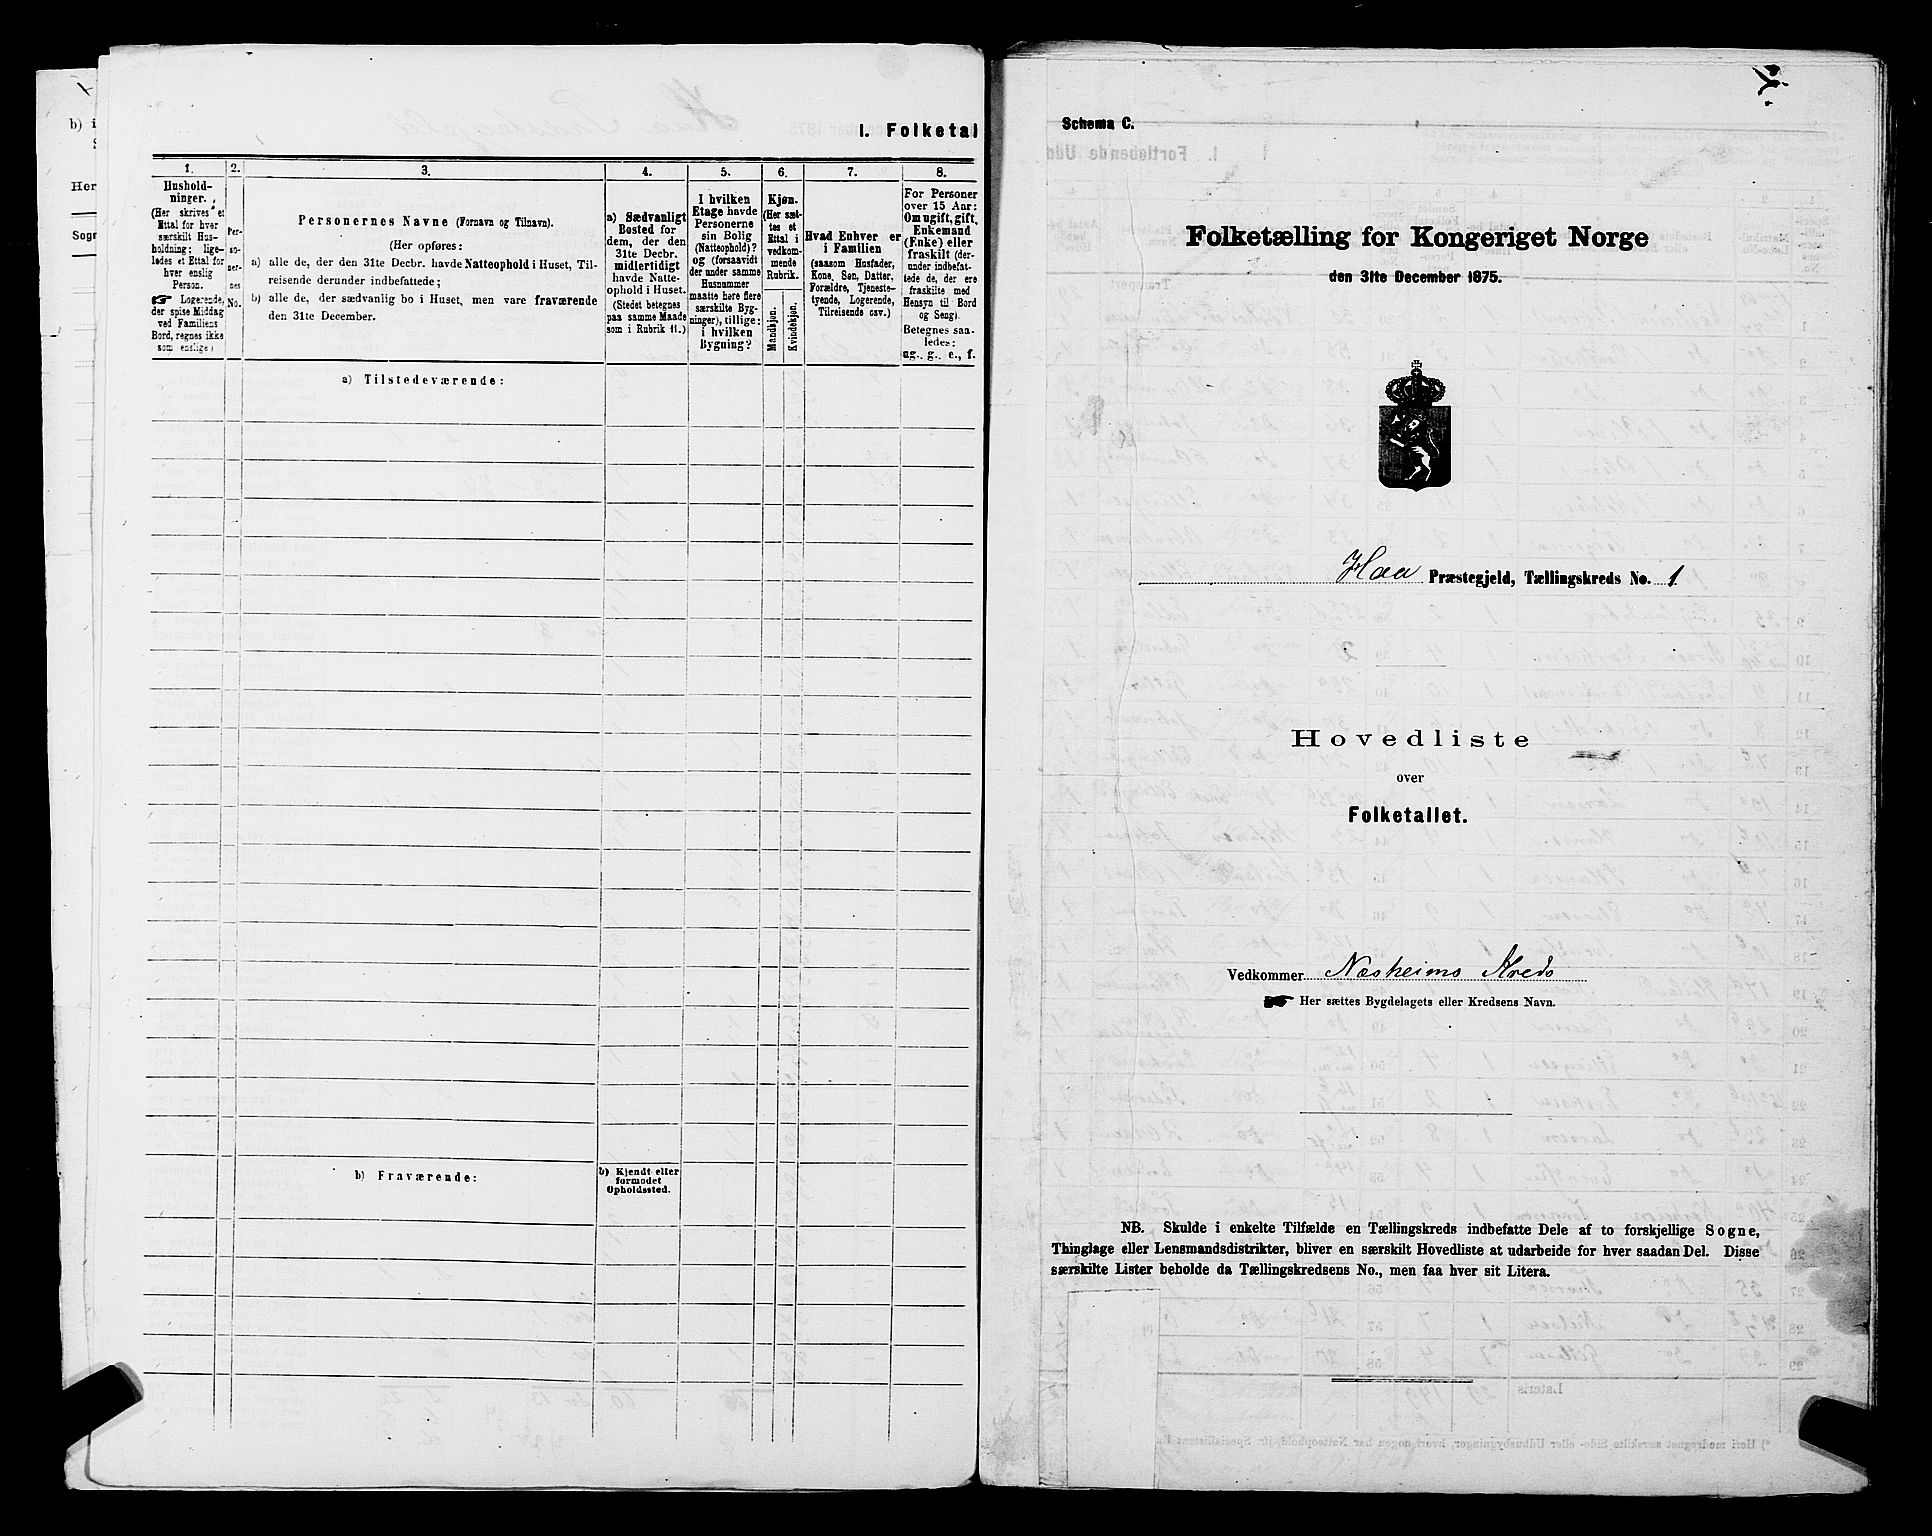 b) i
S
Her
Sogn
I. Folketal
1.
Hushold-
ninger.
(Her skrives et
Ettal for hver
særskilt Hus-
holdning; lige-
ledes et Ettal for
hver enslig
Person.
☞ Logerende,
der spise Middag
ved Familiens
Bord, regnes ikke
som enslige)
2.
Per-
so-
ner-
nes
No.
3.
Personernes Navne (Fornavn og Tilnavn).
(Her opføres:
a) alle de, der den 31te Decbr. havde Natteophold i Huset, Til-
reisende derunder indbefattede;
b) alle de, der sædvanlig bo i Huset, men vare fraværende
den 31te December.
4.
a) Sædvanligt
Bosted for
dem, der den
31te Decbr.
midlertidigt
havde Natte-
ophold i Huset.
(Stedet betegnes
paa samme Maade
som i Rubrik 11.)
5.
I hvilken
Etage havde
Personerne
sin Bolig
(Natteophold)?
og (forsaavidt
der under samme
Husnummer
maatte høre flere
særskilte Byg-
ninger), tillige:
i hvilken
Bygning?
6.
Kjøn.
(Her sæt-
tes et
Ettal i
vedkom-
mende
Rubrik.
Mandkjøn.
Kvindekjøn.
7.
Hvad Enhver er
i Familien
(saasom Husfader,
Kone, Søn, Datter,
Forældre, Tjeneste-
tyende, Logerende,
Tilreisende osv.)
8.
For Personer
over 15 Aar:
Om ugift, gift,
Enkemand
(Enke) eller
fraskilt (der-
under indbefat-
tede de, der ere
fraskilte med
Hensyn til Bord
og Seng).
Betegnes saa-
ledes:
ug., g., e., f.
a) Tilstedeværende:
b) Fraværende:
b) Kjendt eller
formodet
Opholdssted.
Schema C.
Folketælling for Kongeriget Norge
den 31te December 1875.
Haa Præstegjeld, Tællingskreds No. 1
Hovedliste
over
Folketallet.
Vedkommer Næsheims Kreds
☞ Her sættes Bygdelagets eller Kredsens Navn.
NB. Skulde i enkelte Tilfælde en Tællingskreds indbefatte Dele af to forskjellige Sogne,
Thinglage eller Lensmandsdistrikter, bliver en særskilt Hovedliste at udarbeide for hver saadan Del. Disse
særskilte Lister beholde da Tællingskredsens No., men faa hver sit Litera.